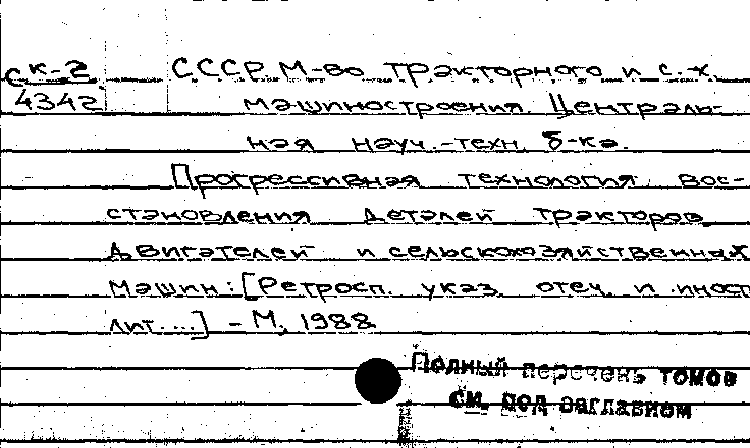 с к-2
4342
СССР. М-во тракторного и с.-х.
машиностроения. Централь-
ная науч.-техн. б-ка.
Прогрессивная технология вос-
становления деталей тракторов,
двигателей и сельскохозяйственных
машин: [Ретросп. указ. отеч. и иностр
лит. ...] - М, 1988
Полный перечень томов
см. под заглавием